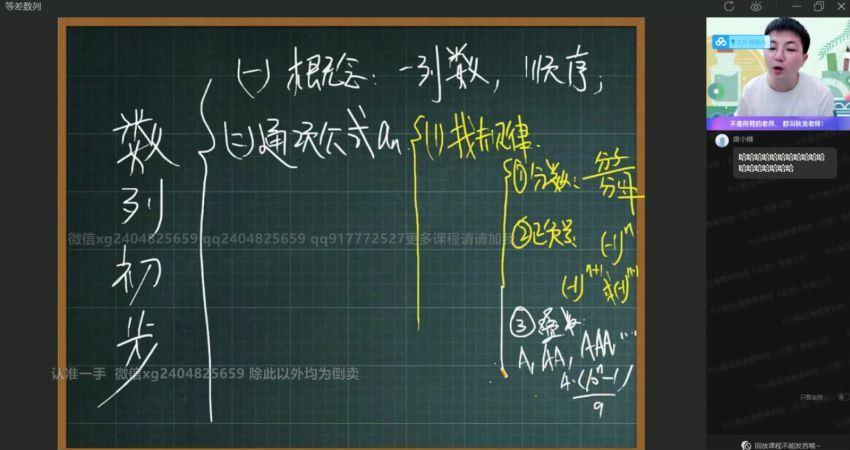 等差数列
(一) 概念：一列数，顺序；
数列初步
(二) 通项公式 an
(1) 找规律.
① 分数：分子
分母
② 正负号：(-1)^n
(-1)^(n+1) 或 (-1)^(n-1)
③ 叠数：
A, AA, AAA, ...
A·(10^n-1)
9
微信xg2404825659 qq2404825659 qq917772527更多课程请请加我
认准一手 微信xg2404825659 除此以外均为倒卖
3.9 MB/s
不是所有的老师，都叫狄龙老师！
唐小糖
哈哈哈哈哈哈哈哈哈哈哈
哈哈哈哈哈哈哈
只看老师
回放课程不能发言哦~